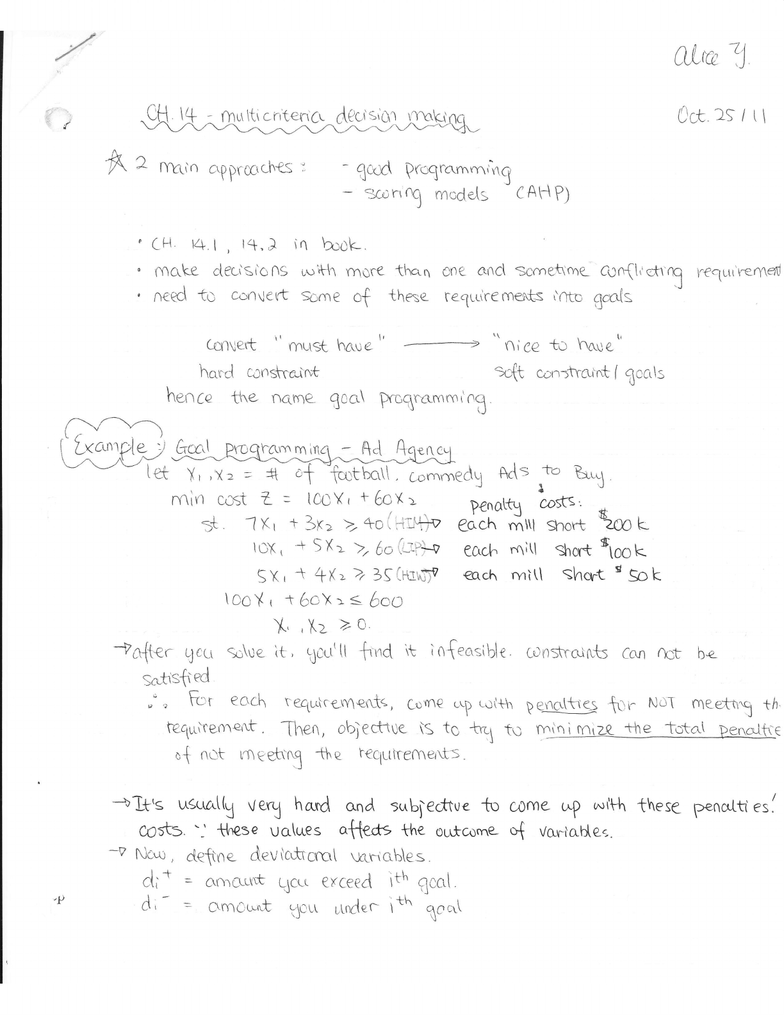 Alice Y.
CH. 14 - multicriteria decision making
Oct. 25 / 11
☆ 2 main approaches : - goal programming
- scoring models (AHP)
• CH. 14.1, 14.2 in book.
• make decisions with more than one and sometime conflicting requirement
• need to convert some of these requirements into goals
convert "must have" → "nice to have"
hard constraint soft constraint / goals
hence the name goal programming.
Example: Goal Programming - Ad Agency
let X₁, X₂ = # of football, commedy Ads to Buy.
min cost Z = 100X₁ + 60X₂ penalty costs:
st. 7X₁ + 3X₂ ≥ 40 (HIM) → each mill short $200k
10X₁ + 5X₂ ≥ 60 (LIP) → each mill short $100k
5X₁ + 4X₂ ≥ 35 (HIW) → each mill short $50k
100X₁ + 60X₂ ≤ 600
X₁, X₂ ≥ 0.
→ after you solve it, you'll find it infeasible. constraints can not be
satisfied
∴ For each requirements, come up with penalties for NOT meeting th
requirement. Then, objective is to try to minimize the total penaltie
of not meeting the requirements.
→ It's usually very hard and subjective to come up with these penalties!
costs. ∵ these values affects the outcome of variables.
→ Now, define deviational variables.
di⁺ = amount you exceed ith goal.
di⁻ = amount you under ith goal